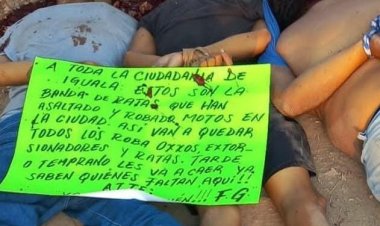 A TODA LA CIUDADANIA DE
IGUALA: ESTOS SON LA
BANDA DE RATAS QUE HAN
ASALTADO Y ROBADO MOTOS EN
LA CIUDAD. ASI VAN A QUEDAR
TODOS LOS ROBA OXXOS EXTOR-
SIONADORES Y RATAS. TARDE
O TEMPRANO LES VA A CAER YA
SABEN QUIENES FALTAN AQUI!!
ATTE: F.G.